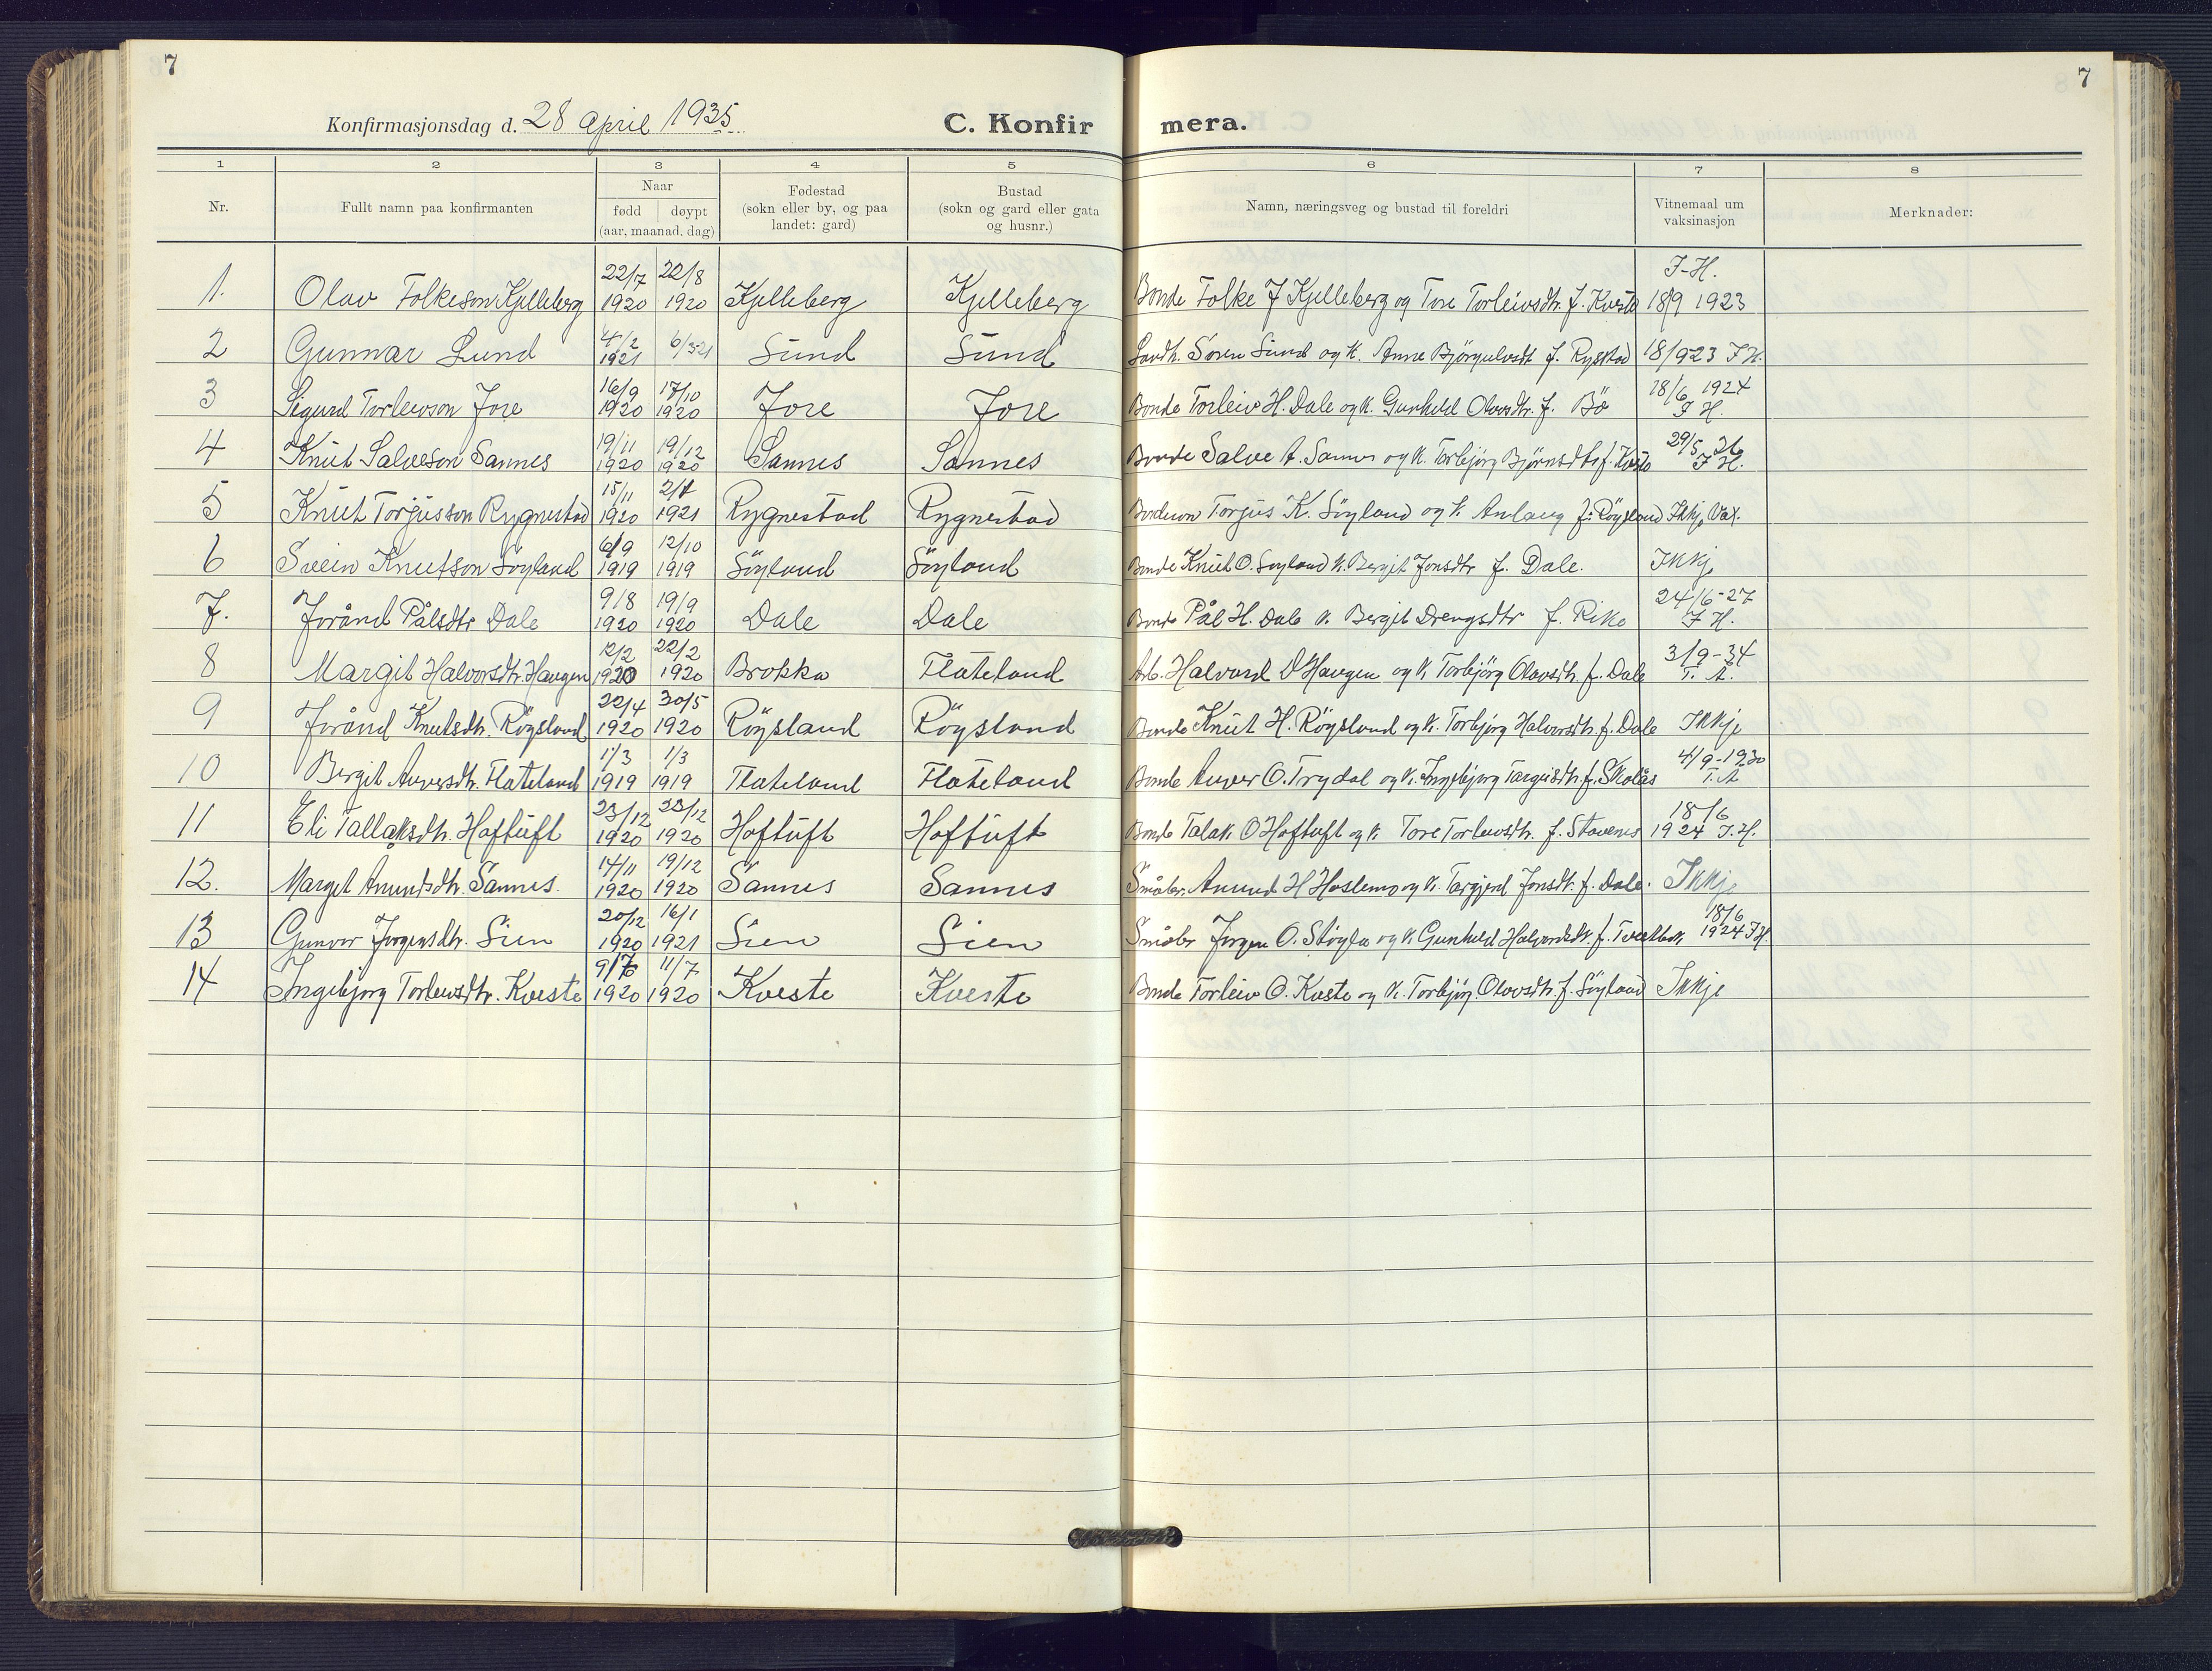 7
7
Konfirmasjonsdag d. 28 april 1935
C. Konfir mera.
1 2 3 4 5 6 7 8
Nr.
Fullt namn paa konfirmanten
Naar
fødd døypt
(aar, maanad, dag)
Fødestad
(sokn eller by, og paa
landet: gard)
Bustad
(sokn og gard eller gata
og husnr.)
Namn, næringsveg og bustad til foreldri
Vitnemaal um
vaksinasjon
Merknader:
22/7 22/8 J-H.
1. Olav Folkeson Kjelleberg 1920 1920 Kjelleberg Kjelleberg Bonde Folke J Kjelleberg og Tore Torleivsdtr. f. Kveste 18/9 1923
4/2 6/3 21
2 Gunnar Lund 1921 Sund Sund Søren Sund og k. Anne Bjørgulvsdt f. Rysstad 18/9 23 J H.
16/9 17/10 18/6 1924
3 Sigurd Torleivson Jore 1920 1920 Jore Jore Bonde Torleiv H. Dale og k. Gunhild Olavsdtr. f. Bö J H.
19/11 19/12 29/5
4 Knut Salveson Sannes 1920 1920 Sannes Sannes Bonde Salve A. Sannes og k. Torbjörg Björnsdtr f. J H.
15/11 2/1
5 Knut Torjusson Rygnestad 1920 1921 Rygnestad Rygnestad Torjus K. Söyland og k. Anlaug f. Röysland Ikkje Vax.
6/9 12/10
6 Svein Knutson Söyland 1919 1919 Söyland Söyland Bonde Knut O. Söyland k. Bergit Jonsdtr f. Dale. Ikkje
9/8 19/9 24/6-27
7. Joränd Pålsdtr Dale 1920 1920 Dale Dale Bonde Pål H. Dale k. Bergit Drengsdtr f. Rike J H.
12/2 22/2 3/9-34
8 Margit Halvorsdtr. Haugen 1920 1920 Brokka Flateland Arb. Halvard D Haugen og k. Torbjörg Olavsdtr. f. Dale T. A.
22/4 30/5
9 Joränd Knutsdtr. Röysland 1920 1920 Röysland Röysland Bonde Knut H. Röysland og k. Torbjörg Halvorsdtr. f. Dale Ikkje
1/3 1/3 4/9-1930
10 Bergit Anversdtr. Flateland 1919 1919 Flateland Flateland Bonde Anver O. Trydal og k. Ingebjørg Targeisdtr. f. Skolås T. A
23/12 23/12 18/6
11 Eli Tallaksdtr. Hoftuft 1920 1920 Hoftuft Hoftuft Bonde Talak O Hoftuft og k. Tore Torleivsdtr. f. Stavenes 1924 J.H.
14/11 19/12
12. Margit Anundsdtr. Sannes. 1920 1920 Sannes Sannes Småbr. Anund H Haslemo og k. Targjerd Jonsdtr. f. Dale. Ikkje
20/12 16/1 18/6
13 Gunvor Jorgensdtr. Sien 1920 1921 Sien Sien Småbr Jorgen O. Støyle og k. Gunhild Halvordsdtr. f. 1924 J H.
11/7
14 Ingebjørg Torleivsdtr. Kveste 1920 1920 Kveste Kveste Bonde Torleiv O. Kveste og k. Torbjörg Olavsdtr. f. Söyland Ikkje